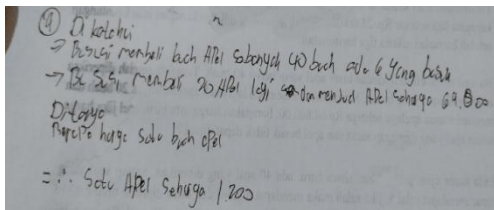 ④ Diketahui
→ Bu susi membeli buah Apel sebanyak 40 buah ada 6 yang busuk
→ Bu Susi membeli 20 APel lagi dan menjual APel seharga 64.800
Ditanya
Berapa harga satu buah apel
= ∴ Satu APel seharga 1.200